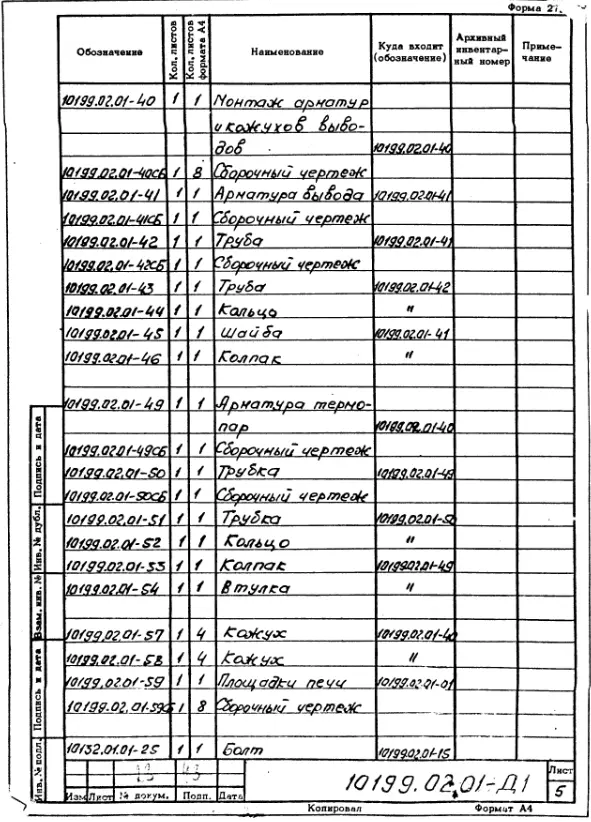 Форма 2
Обозначение Кол. листов Кол. листов формата А4 Наименование Куда входит (обозначение) Архивный инвентар- ный номер Приме- чание
10199.02.01-40 1 1 Монтаж арматур
и кожухов выво-
дов 10199.02.01-40
10199.02.01-40СБ 1 8 Сборочный чертеж
10199.02.01-41 1 1 Арматура вывода 10199.02.01-41
10199.02.01-41СБ 1 1 Сборочный чертеж
10199.02.01-42 1 1 Труба 10199.02.01-41
10199.02.01-42СБ 1 1 Сборочный чертеж
10199.02.01-43 1 1 Труба 10199.02.01-42
10199.02.01-44 1 1 Кольцо "
10199.02.01-45 1 1 Шайба 10199.02.01-41
10199.02.01-46 1 1 Колпак "
10199.02.01-49 1 1 Арматура термо-
пар 10199.02.01-40
10199.02.01-49СБ 1 1 Сборочный чертеж
10199.02.01-50 1 1 Трубка 10199.02.01-49
10199.02.01-50СБ 1 1 Сборочный чертеж
10199.02.01-51 1 1 Трубка 10199.02.01-50
10199.02.01-52 1 1 Кольцо "
10199.02.01-53 1 1 Колпак 10199.02.01-49
10199.02.01-54 1 1 Втулка "
10199.02.01-57 1 4 Кожух 10199.02.01-40
10199.02.01-58 1 4 Кожух "
10199.02.01-59 1 1 Площадки печи 10199.02.01-01
10199.02.01-59СБ 1 8 Сборочный чертеж
10132.01.01-25 1 1 Болт 10199.02.01-15
Инв. № подл. Подпись и дата Взам. инв. № Инв. № дубл. Подпись и дата
Изм Лист № докум. Подп. Дата
10199.02.01-Д1
Лист
5
Копировал Формат А4